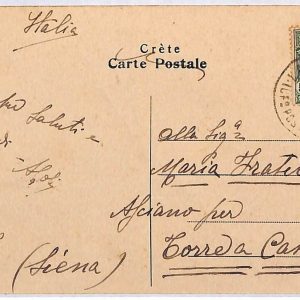 Itália
Crète
Carte Postale
Saluti e
alla Sig.ª
Maria Frater
Asciano per
Torre da Cas
(Siena)